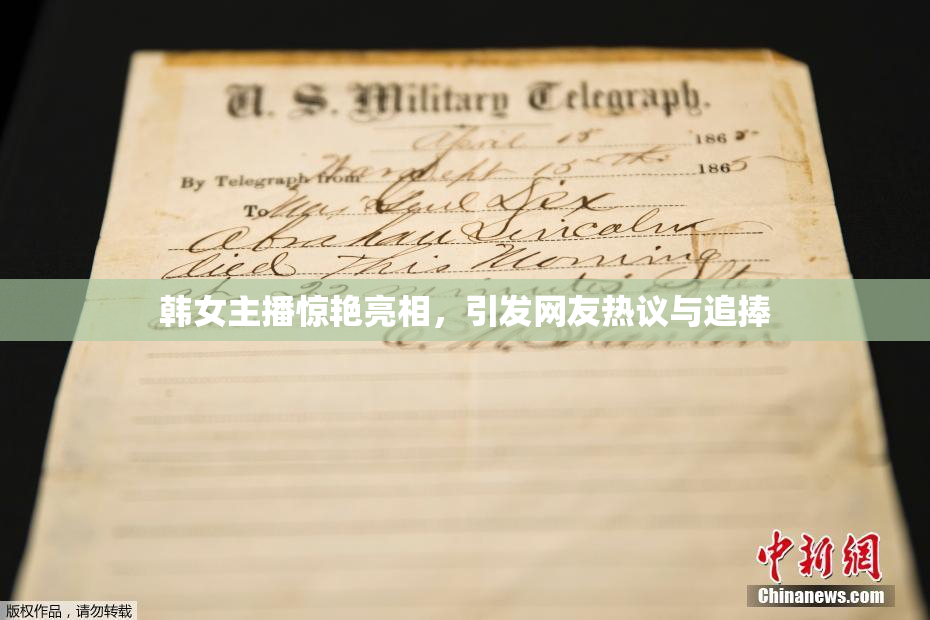 U. S. Military Telegraph.
April 15 1865
By Telegraph from War Dept 15th 1865
To Maj Genl Dix
Abraham Lincoln
died This Morning
at 22 minutes after
韩女主播惊艳亮相，引发网友热议与追捧
E. M. Stanton
中新网
Chinanews.com
版权作品，请勿转载